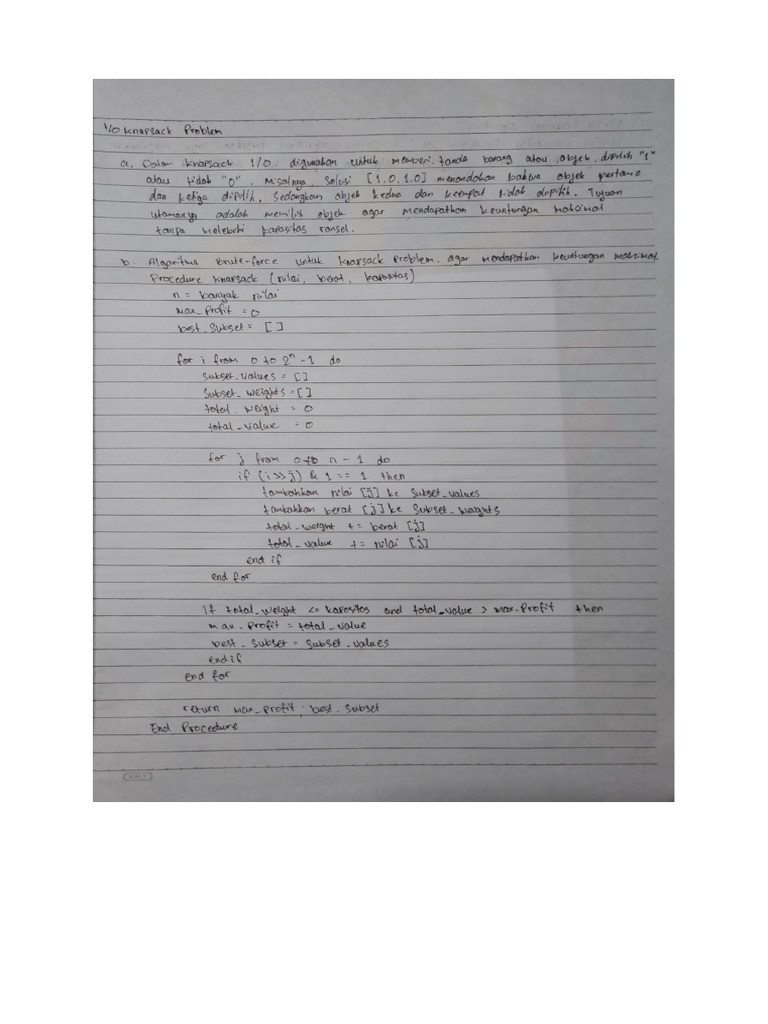 1/0 Knapsack Problem
a. Dalam knapsack 1/0 digunakan untuk memberi tanda barang atau objek dipilih "1"
atau tidak "0". Misalnya, Solusi [1.0.1.0] menandakan bahwa objek pertama
dan ketiga dipilih, sedangkan objek kedua dan keempat tidak dipilih. Tujuan
utamanya adalah memilih objek agar mendapatkan keuntungan maksimal
tanpa melebihi kapasitas ransel.
b. Algoritma Brute-force untuk Knapsack Problem, agar mendapatkan keuntungan maksimal
Procedure knapsack (nilai, berat, kapasitas)
n = banyak nilai
max_profit = 0
best_subset = [ ]
for i from 0 to 2^n - 1 do
subset_values = [ ]
subset_weights = [ ]
total_weight = 0
total_value = 0
for j from 0 to n - 1 do
if (i >> j) & 1 == 1 then
tambahkan nilai [j] ke subset_values
tambahkan berat [j] ke subset_weights
total_weight += berat [j]
total_value += nilai [j]
end if
end for
if total_weight <= kapasitas and total_value > max_profit then
max_profit = total_value
best_subset = subset_values
end if
end for
return max_profit, best_subset
End Procedure